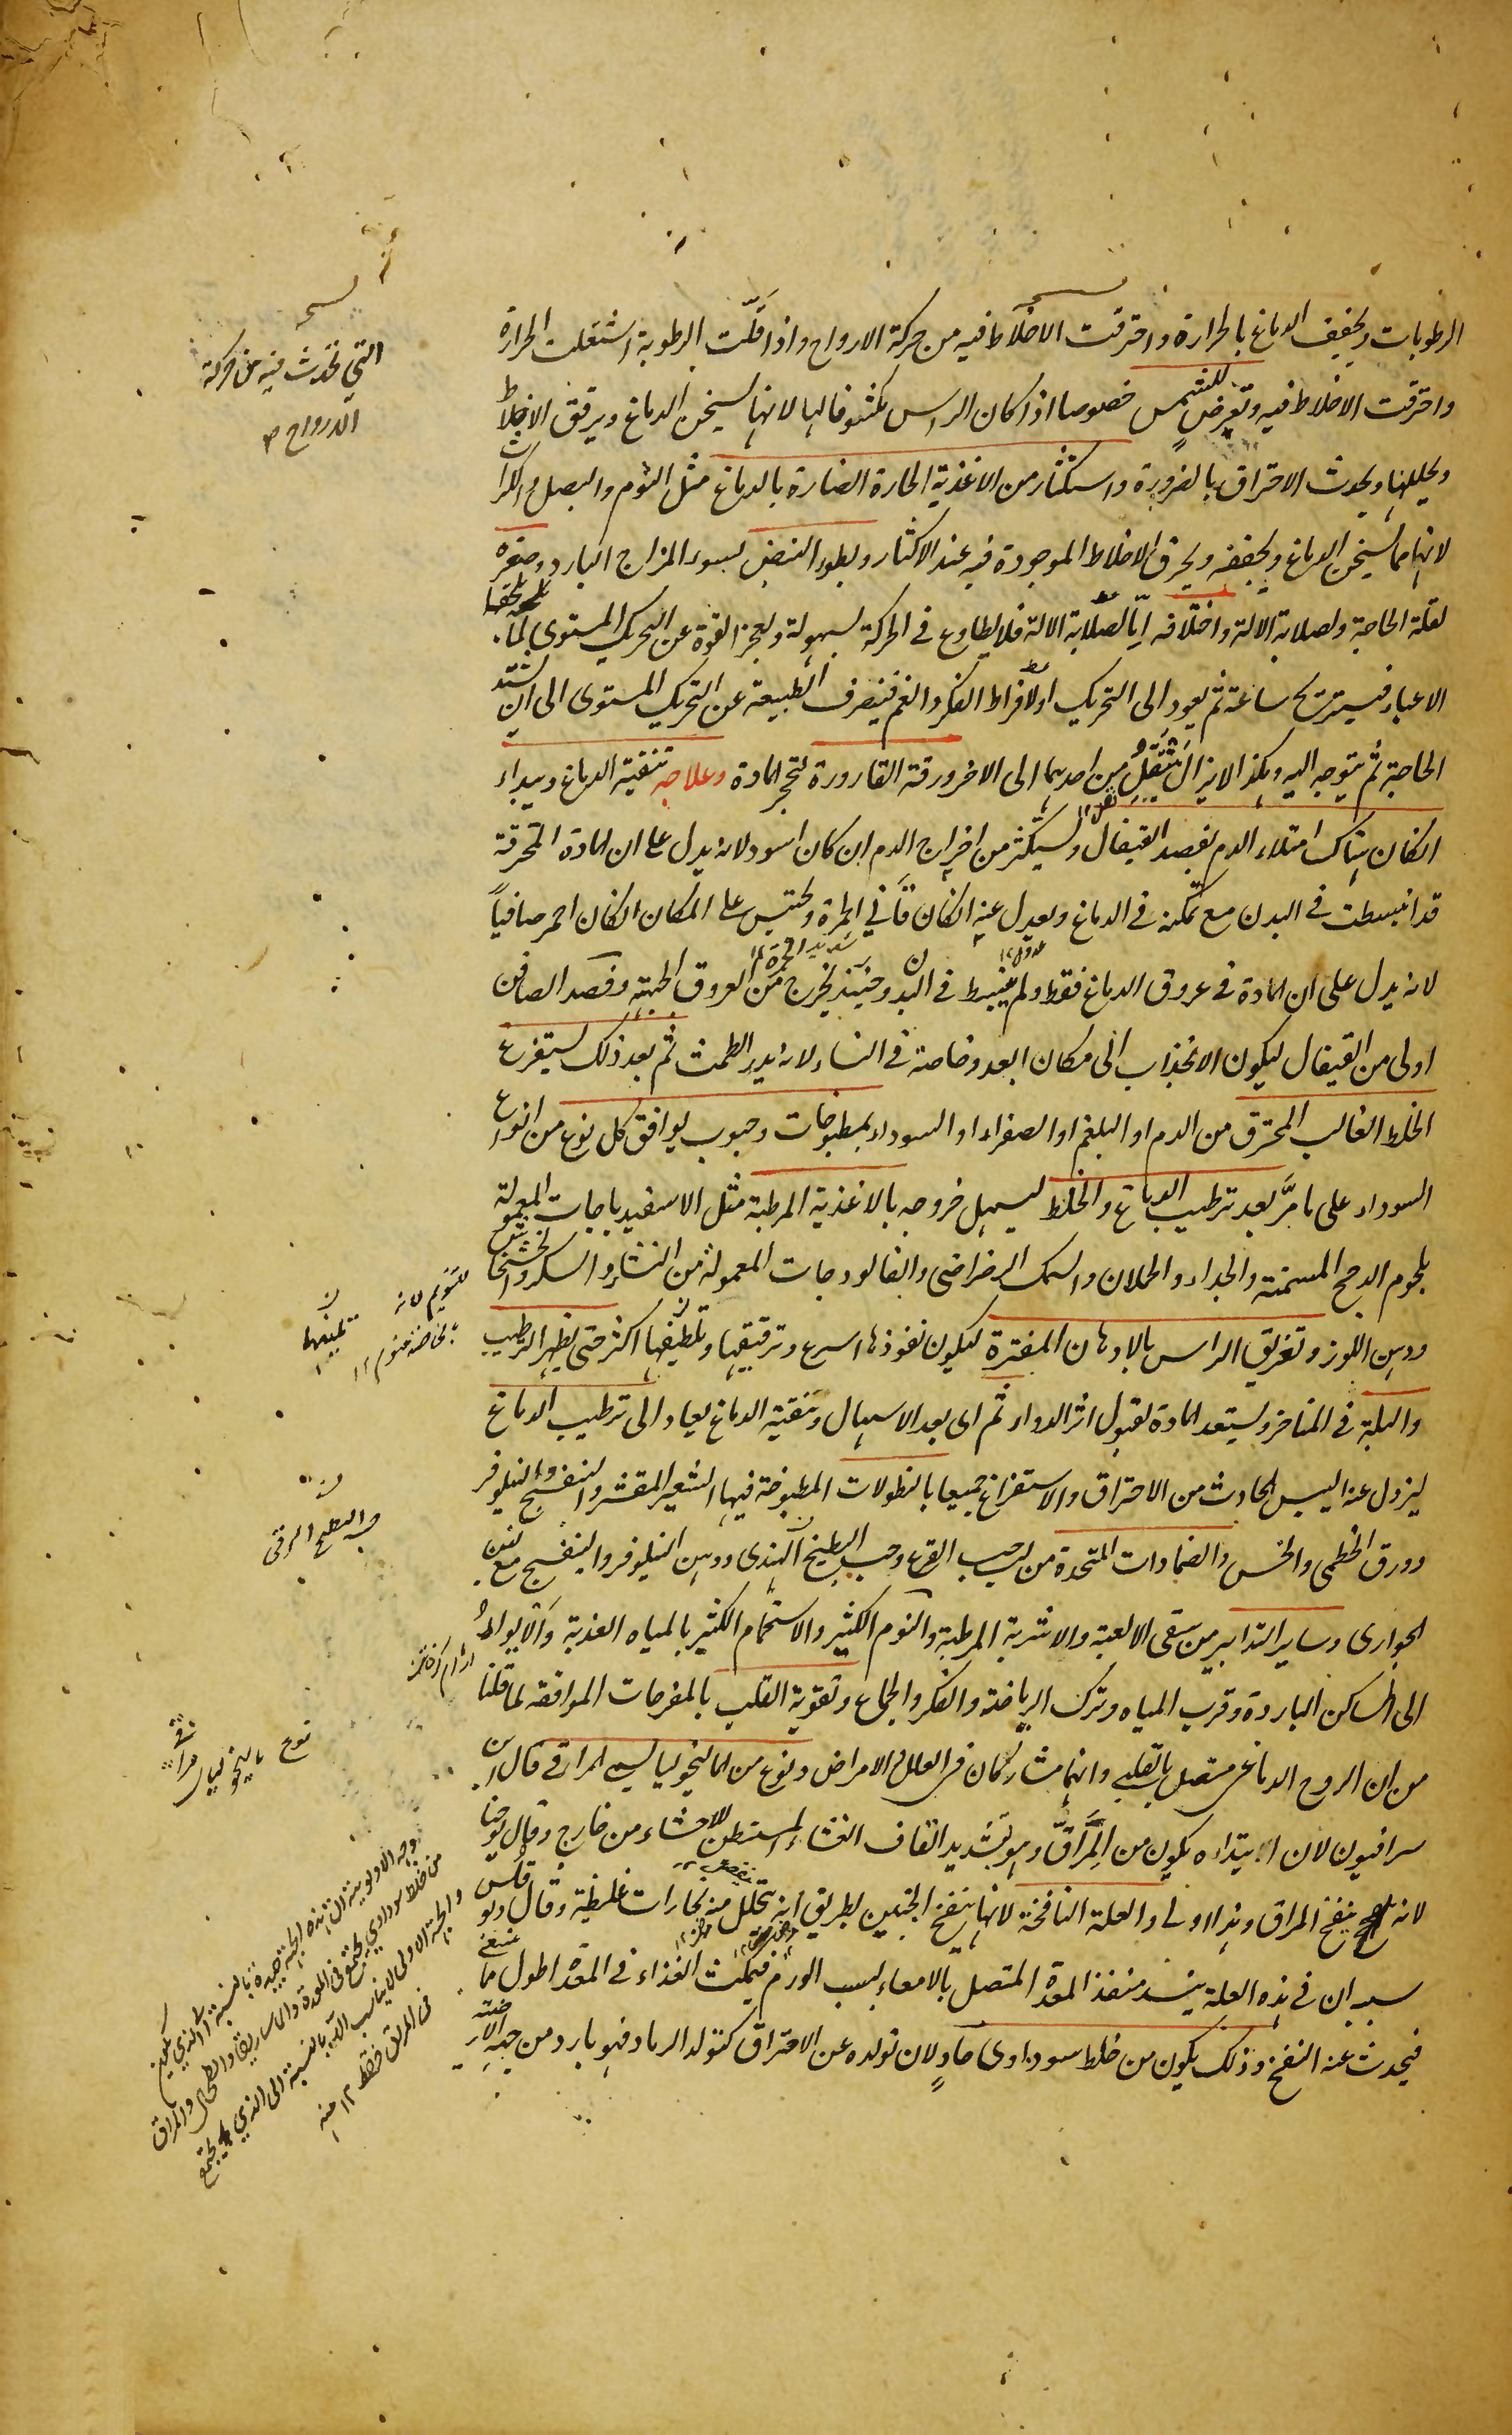 الرطوبات ويخفف الدماغ بالحرارة واحترقت الاخلاط فيه من حركة الارواح واذا قلّت الرطوبة اشتعلت الحرارة
واحترقت الاخلاط فيه وتعرض للشمس خصوصا اذا كان الراس مكشوفا لها لانها يسخن الدماغ ويرقق الاخلاط
ويحللها ويحدث الاحتراق بالضرورة واستكثار من الاغذية الحارة الضارة بالدماغ مثل الثوم والبصل والكراث
لانها مما يسخن الدماغ ويجففه ويحرق الاخلاط الموجودة فيه عند الاكثار وبطوء النبض لسوء المزاج البارد وصغره
لقلة الحاجة ولصلابة الالة واختلافه اما لصلابة الالة فلا يطاوع في الحركة بسهولة ويعجز القوة عن التحريك المستوى لما يلحقها
الاعياء فيستريح ساعة ثم يعود الى التحريك او لافراط الفكر والغم فينصرف الطبيعة عن التحريك المستوى الى ان يشتد
الحاجة ثم يتوجه اليه وهكذا لا يزال ينتقل من احديهما الى الاخر ورقة القارورة لتحجر المادة وعلاجه تنقية الدماغ ويبداء
انكان هناك امتلاء الدم بفصد القيفال وليستكثر من اخراج الدم ان كان اسود لانه يدل على ان المادة المحترقة
قد انبسطت في البدن مع تمكنه في الدماغ ويعدل عنه انكان قاني الحمرة ويحتبس على المكان انكان احمر صافياً
لانه يدل على ان المادة في عروق الدماغ فقط ولم ينبسط في البدن وحينئذ يخرج من العروق الجبهة وفصد الصافن
اولى من القيفال ليكون الانجذاب الى مكان ابعد وخاصة في النساء لانه يدر الطمث ثم بعد ذلك يستفرغ
الخلط الغالب المحترق من الدم او البلغم او الصفراء او السوداء بمطبوخات وحبوب يوافق كل نوع من انواع
السوداء على ما مرَّ بعد ترطيب الدماغ والخلط ليسهل خروجه بالاغذية المرطبة مثل الاسفيدباجات المعمولة
بلحوم الدجج المسمنة والجداء والحملان والسمك الرضراضى والفالودجات المعمولة من النشاء والسكر والخشخاش
ودهن اللوز وتغريق الراس بالادهان المفترة ليكون نفوذها اسرع وترقيقها وتلطيفها اكثر حتى يظهر الترطيب
والبلة في المناخر وليستعد المادة لقبول اثر الدواء ثم اى بعد الاسهال وتنقية الدماغ يعاد الى ترطيب الدماغ
ليزول عنه اليبس الحادث من الاحتراق والاستفراغ جميعا بالنطولات المطبوخة فيها الشعير المقشر والبنفسج والنيلوفر
وورق الخطمى والخس والضمادات المتخذة من لب حب القرع وحب البطيخ الهندى ودهن النيلوفر والبنفسج مع لبن
الجوارى وساير التدابير من سقى الالعبة والاشربة المرطبة والنوم الكثير والاستحمام الكثير بالمياه العذبة والايواء
الى المساكن الباردة وقرب المياه وترك الرياضة والفكر والجماع وتقوية القلب بالمفرحات الموافقه لما قلنا
من ان الروح الدماغى متصل بالقلبى وانهما مشاركان في العلل والامراض ونوع من المالنخوليا يسمى المراقى قال ابن
سرافيون لان ابتداءه يكون من المَراقّ وهو بتشديد القاف الغشاء المستبطن للاحشاء من خارج وقال يوحنا
لانه ينفخ المراق وهذا اولى والعلة النافخة لانها ينفخ الجنبين بطريق انه يتحلل منه بخارات غليظة وقال ديوقلس
سببه ان في هذه العلة ينسد منفذ المعدة المتصل بالامعاء بسبب الورم فيمكث الغذاء في المعدة اطول مما ينبغي
فيحدث عنه النفخ وذلك يكون من خلط سوداوى حادٍ لان تولده عن الاحتراق كتولد الرماد فهو بارد من جهة الارضية
التي تحدث فيه من حركة
الارواح
للتنويم لانه
بالخاصة منوم ١٢
تليينها
حب البطيخ الرقى
نوع مالنخوليا مراقى
وجه الاولوية ان هذه الجهة جيدة بالنسبة الى الذي يكون
من خلط سوداوي يجتمع في المعدة والماساريقا والطحال والمراق
والجهة الاولى لا يناسب الا بالنسبة الى الذي يجتمع
في المراق فقط ١٢ منه